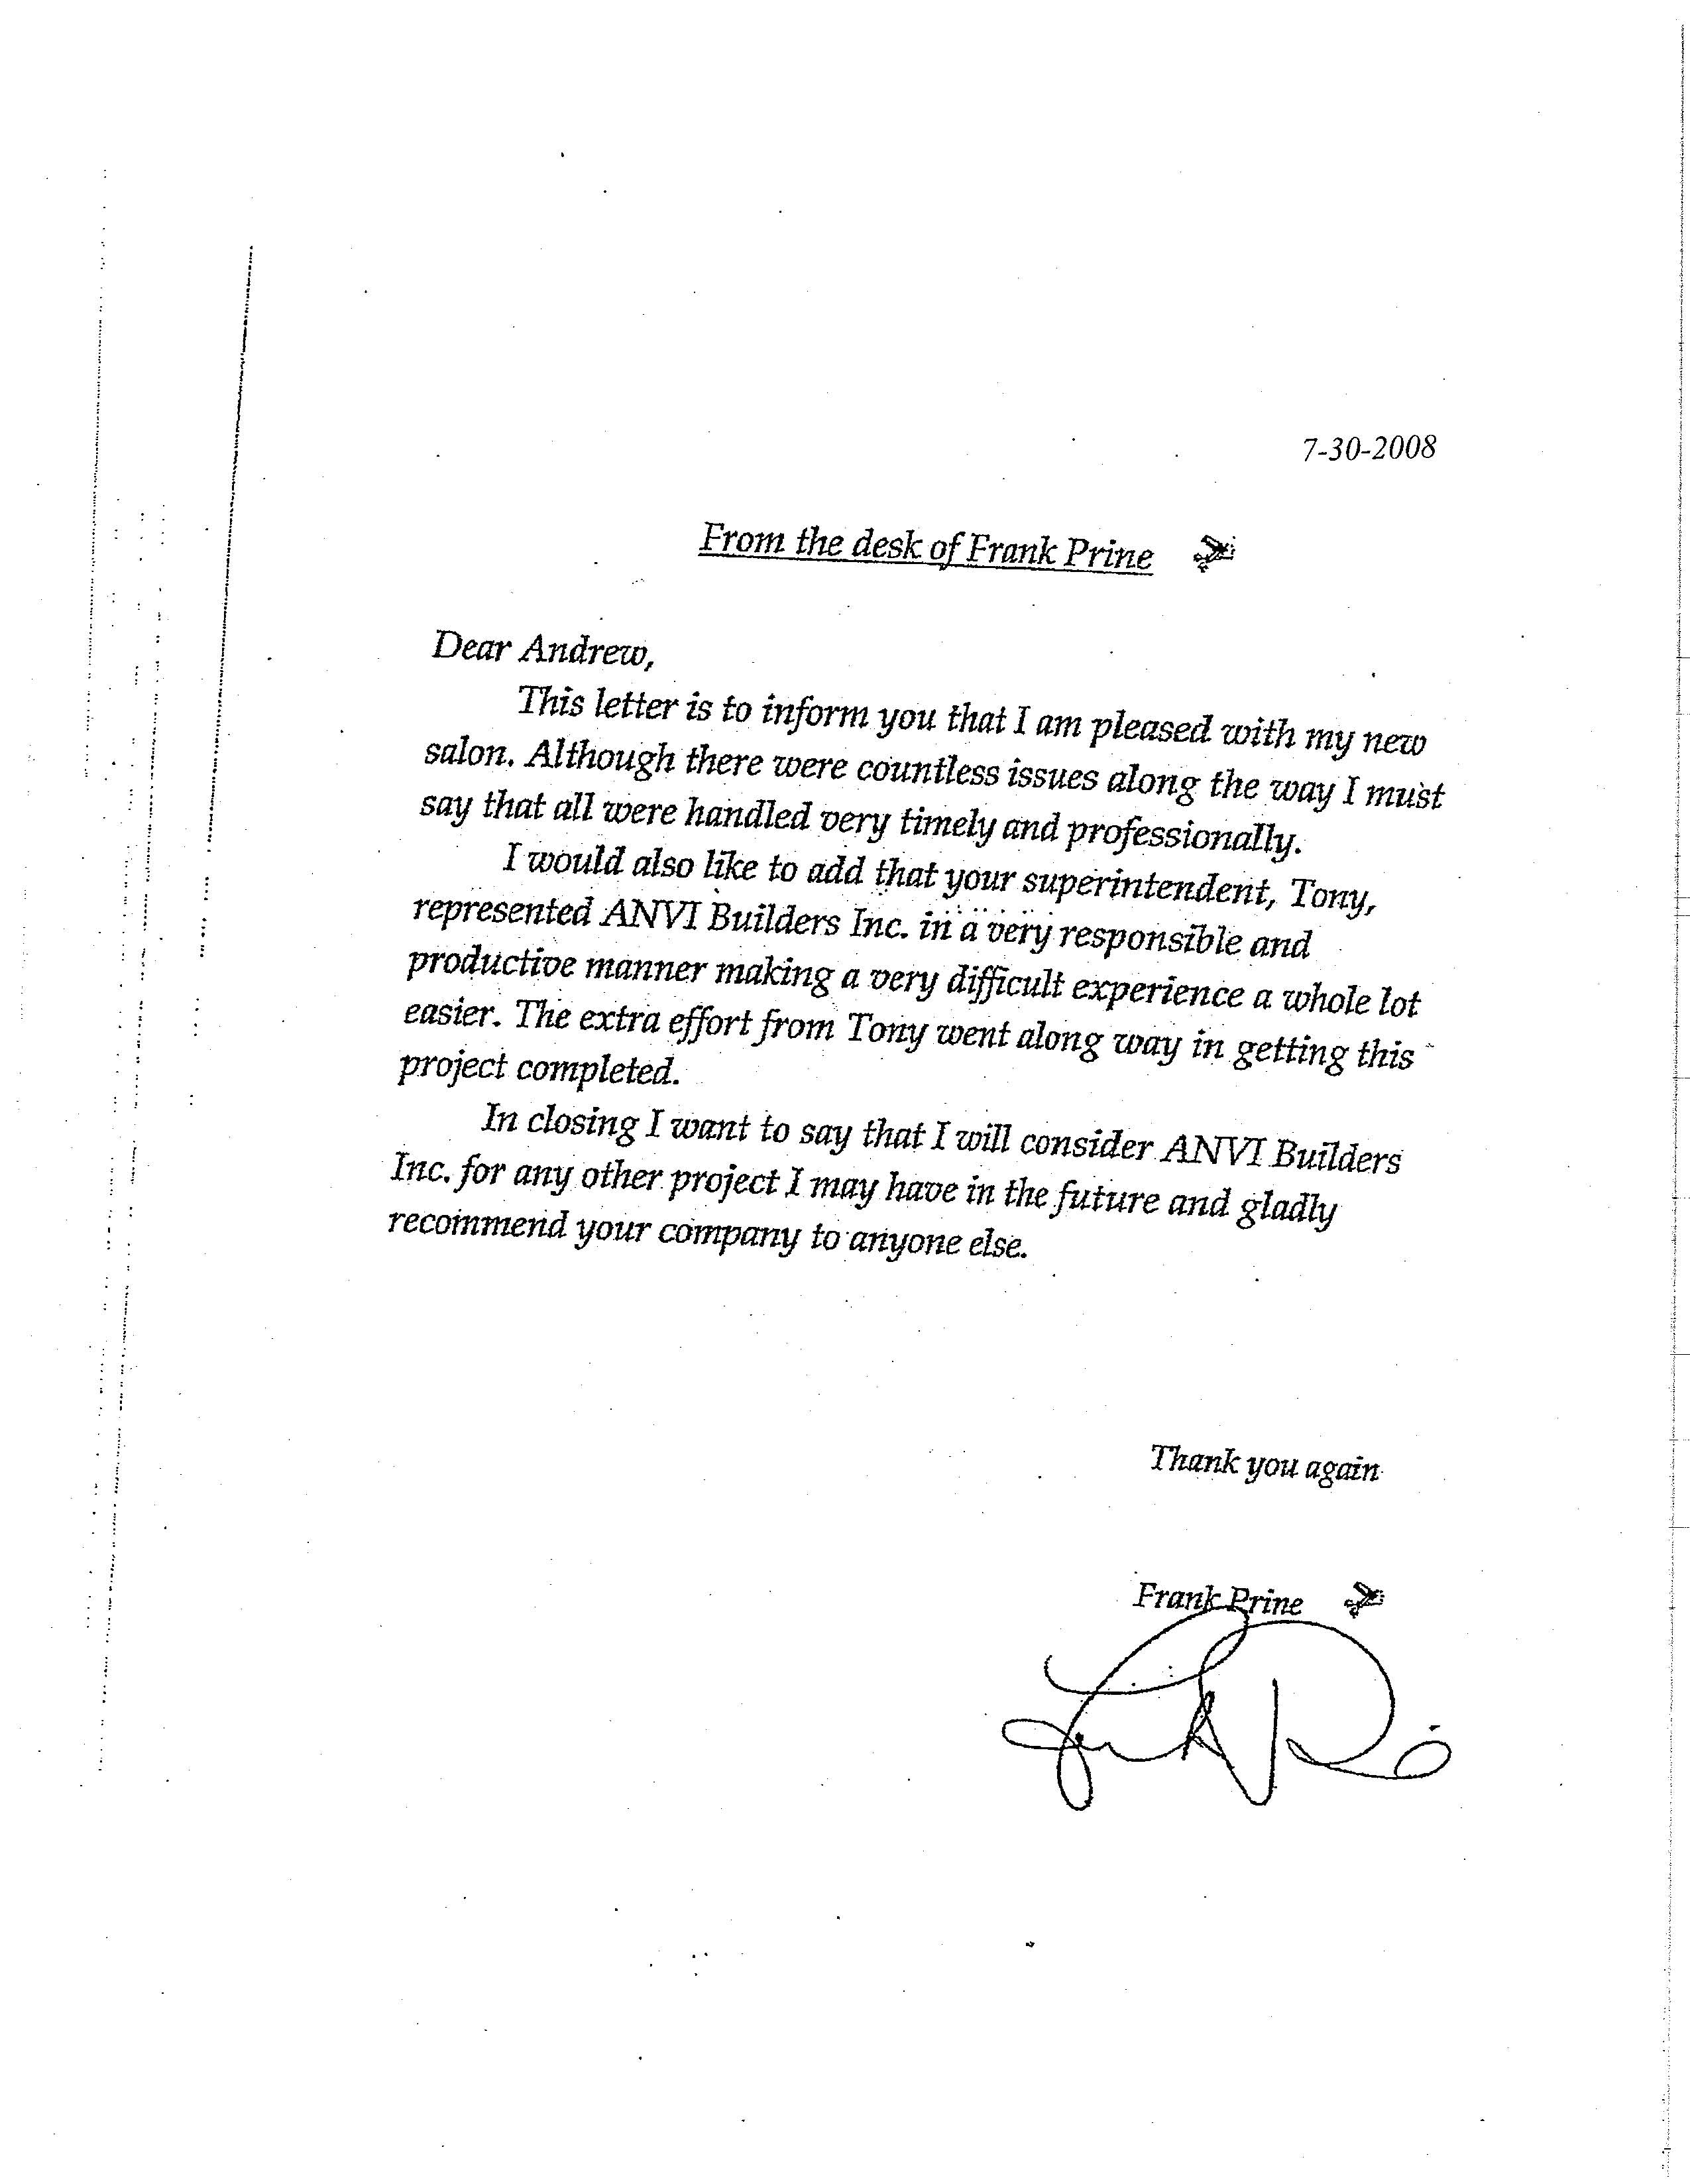 7-30-2008
From the desk of Frank Prine
Dear Andrew,
This letter is to inform you that I am pleased with my new
salon. Although there were countless issues along the way I must
say that all were handled very timely and professionally.
I would also like to add that your superintendent, Tony,
represented ANVI Builders Inc. in a very responsible and
productive manner making a very difficult experience a whole lot
easier. The extra effort from Tony went along way in getting this
project completed.
In closing I want to say that I will consider ANVI Builders
Inc. for any other project I may have in the future and gladly
recommend your company to anyone else.
Thank you again
Frank Prine